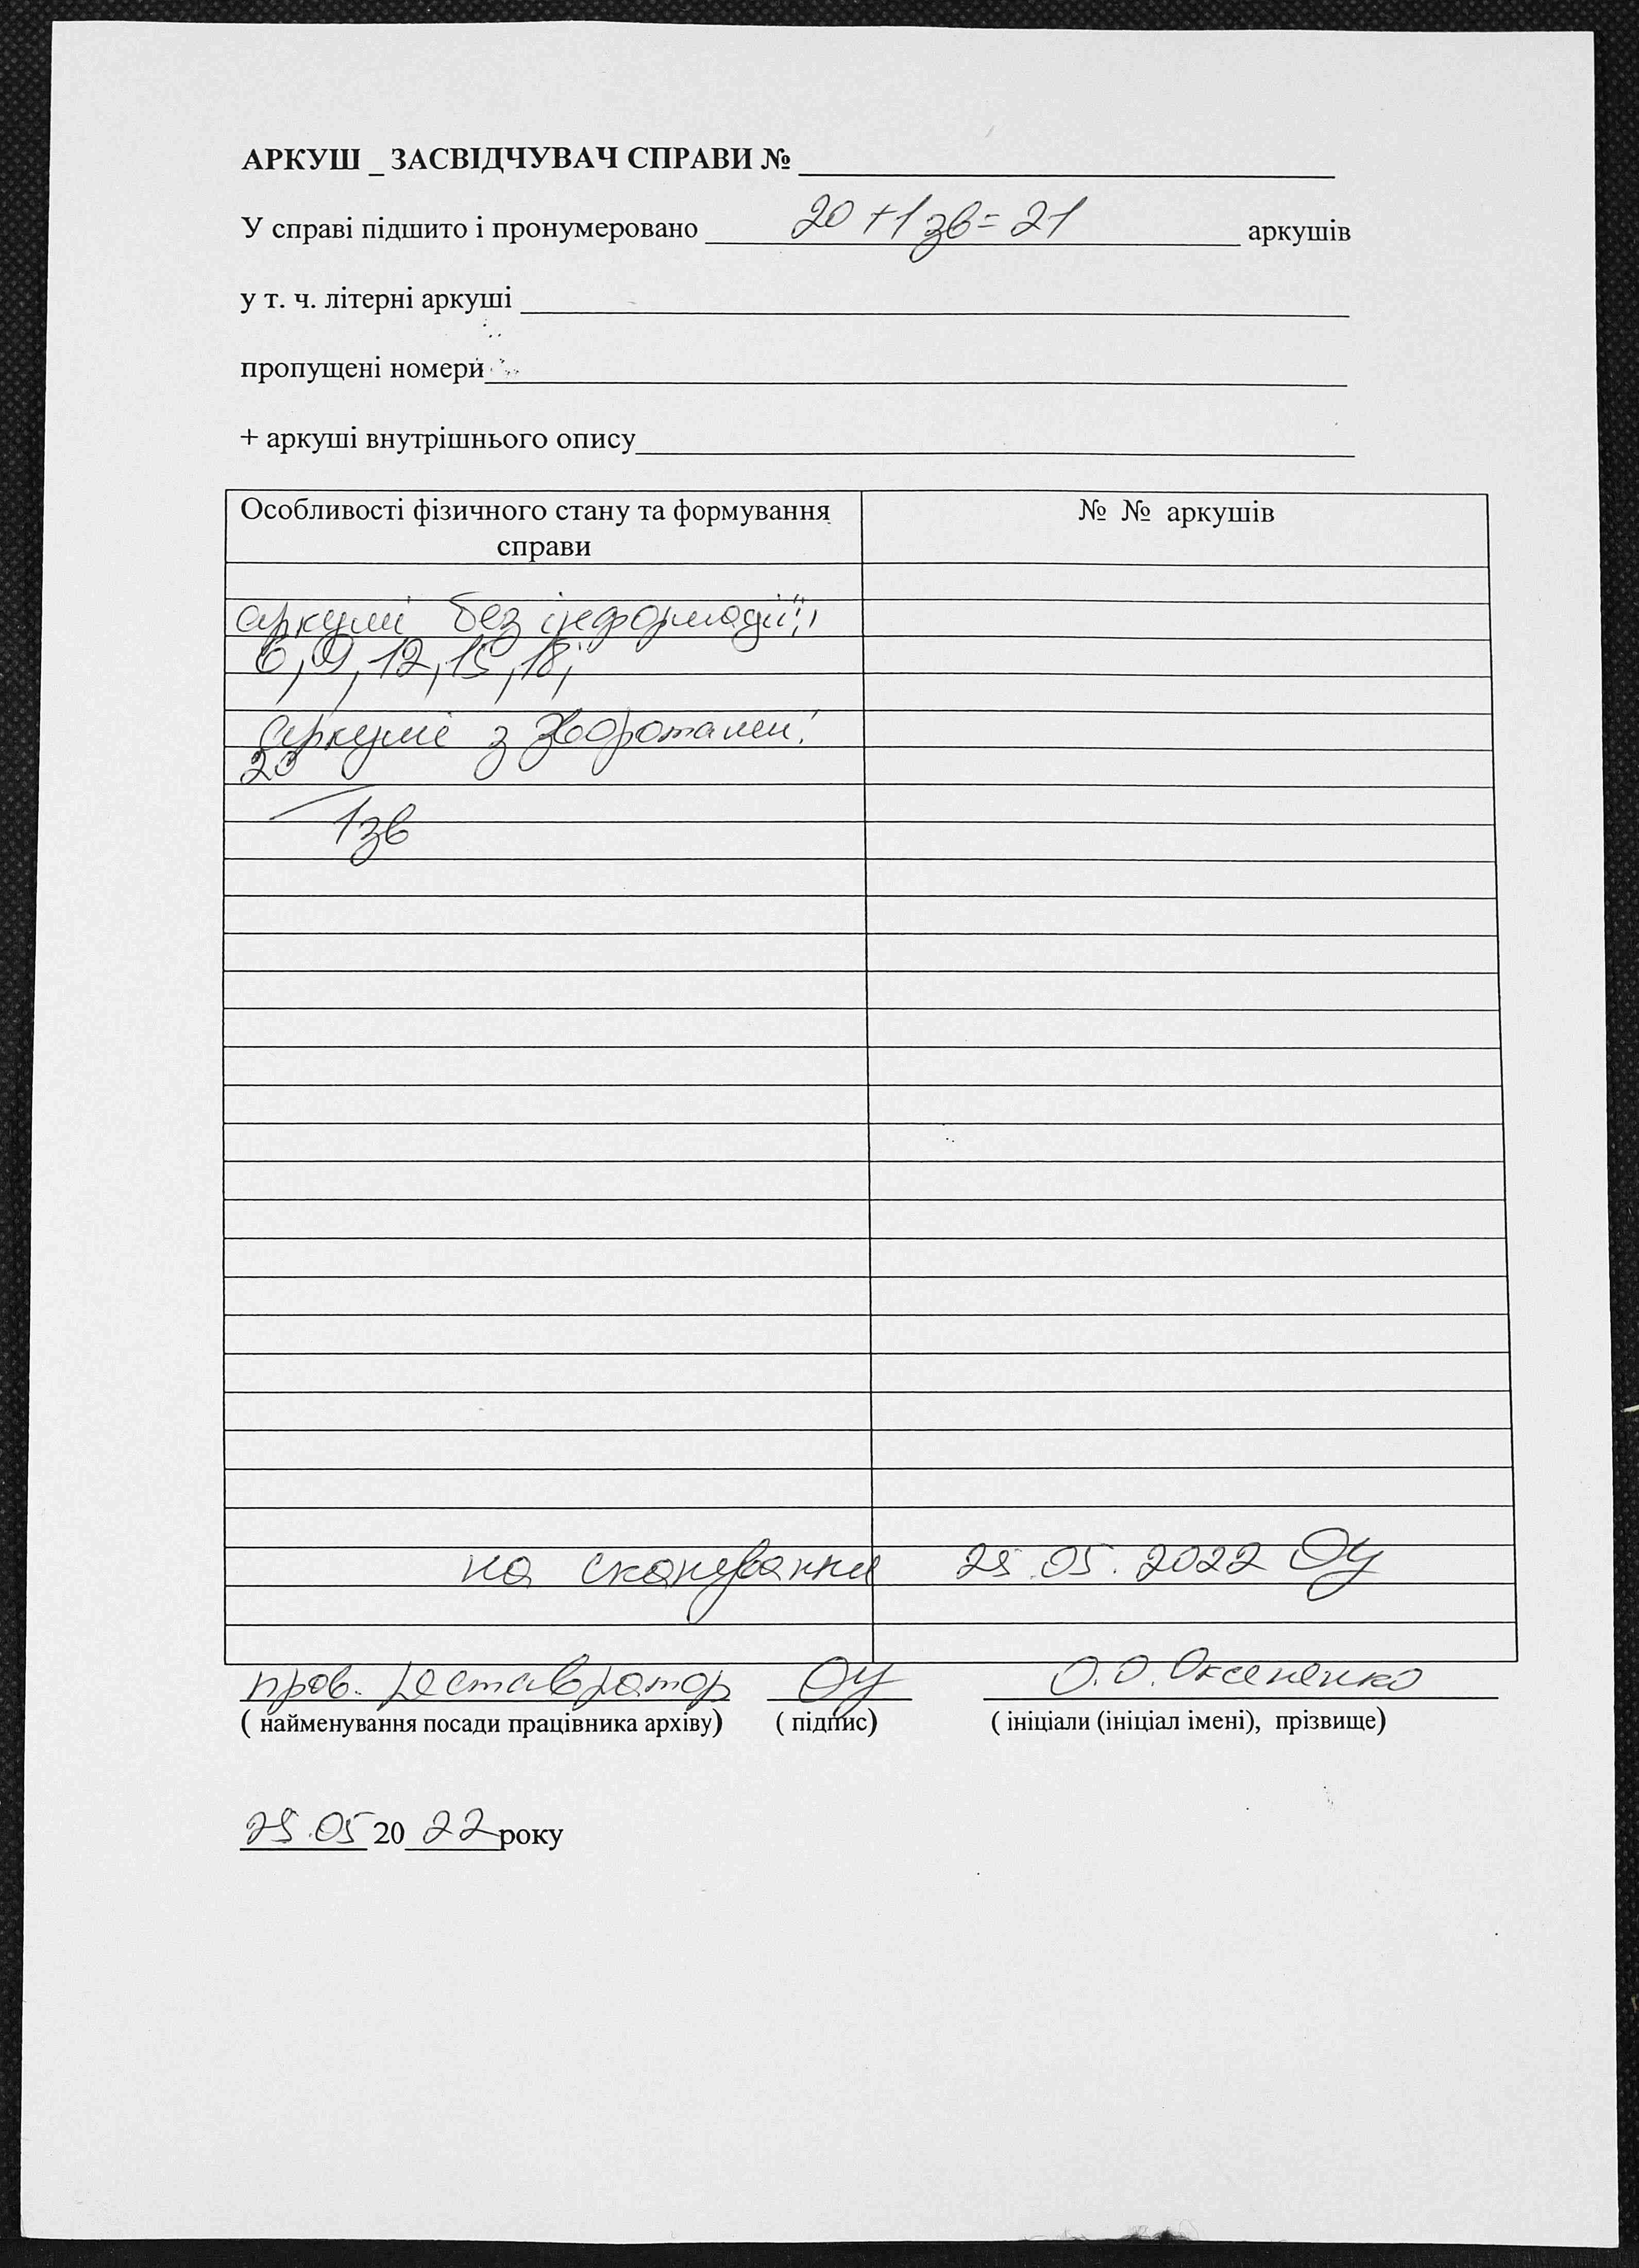 АРКУШ _ ЗАСВІДЧУВАЧ СПРАВИ №
У справі підшито і пронумеровано 20 + 1 зв = 21 аркушів
у т. ч. літерні аркуші
пропущені номери
+ аркуші внутрішнього опису
Особливості фізичного стану та формування справи
№ № аркушів
аркуші без інформації:
6, 9, 12, 15, 18;
аркуші з зворотами:
1 зв
на сканування 25.05.2022 Оу
пров. реставратор Оу О.О. Оксененко
( найменування посади працівника архіву) ( підпис) ( ініціали (ініціал імені), прізвище)
25.05 20 22 року